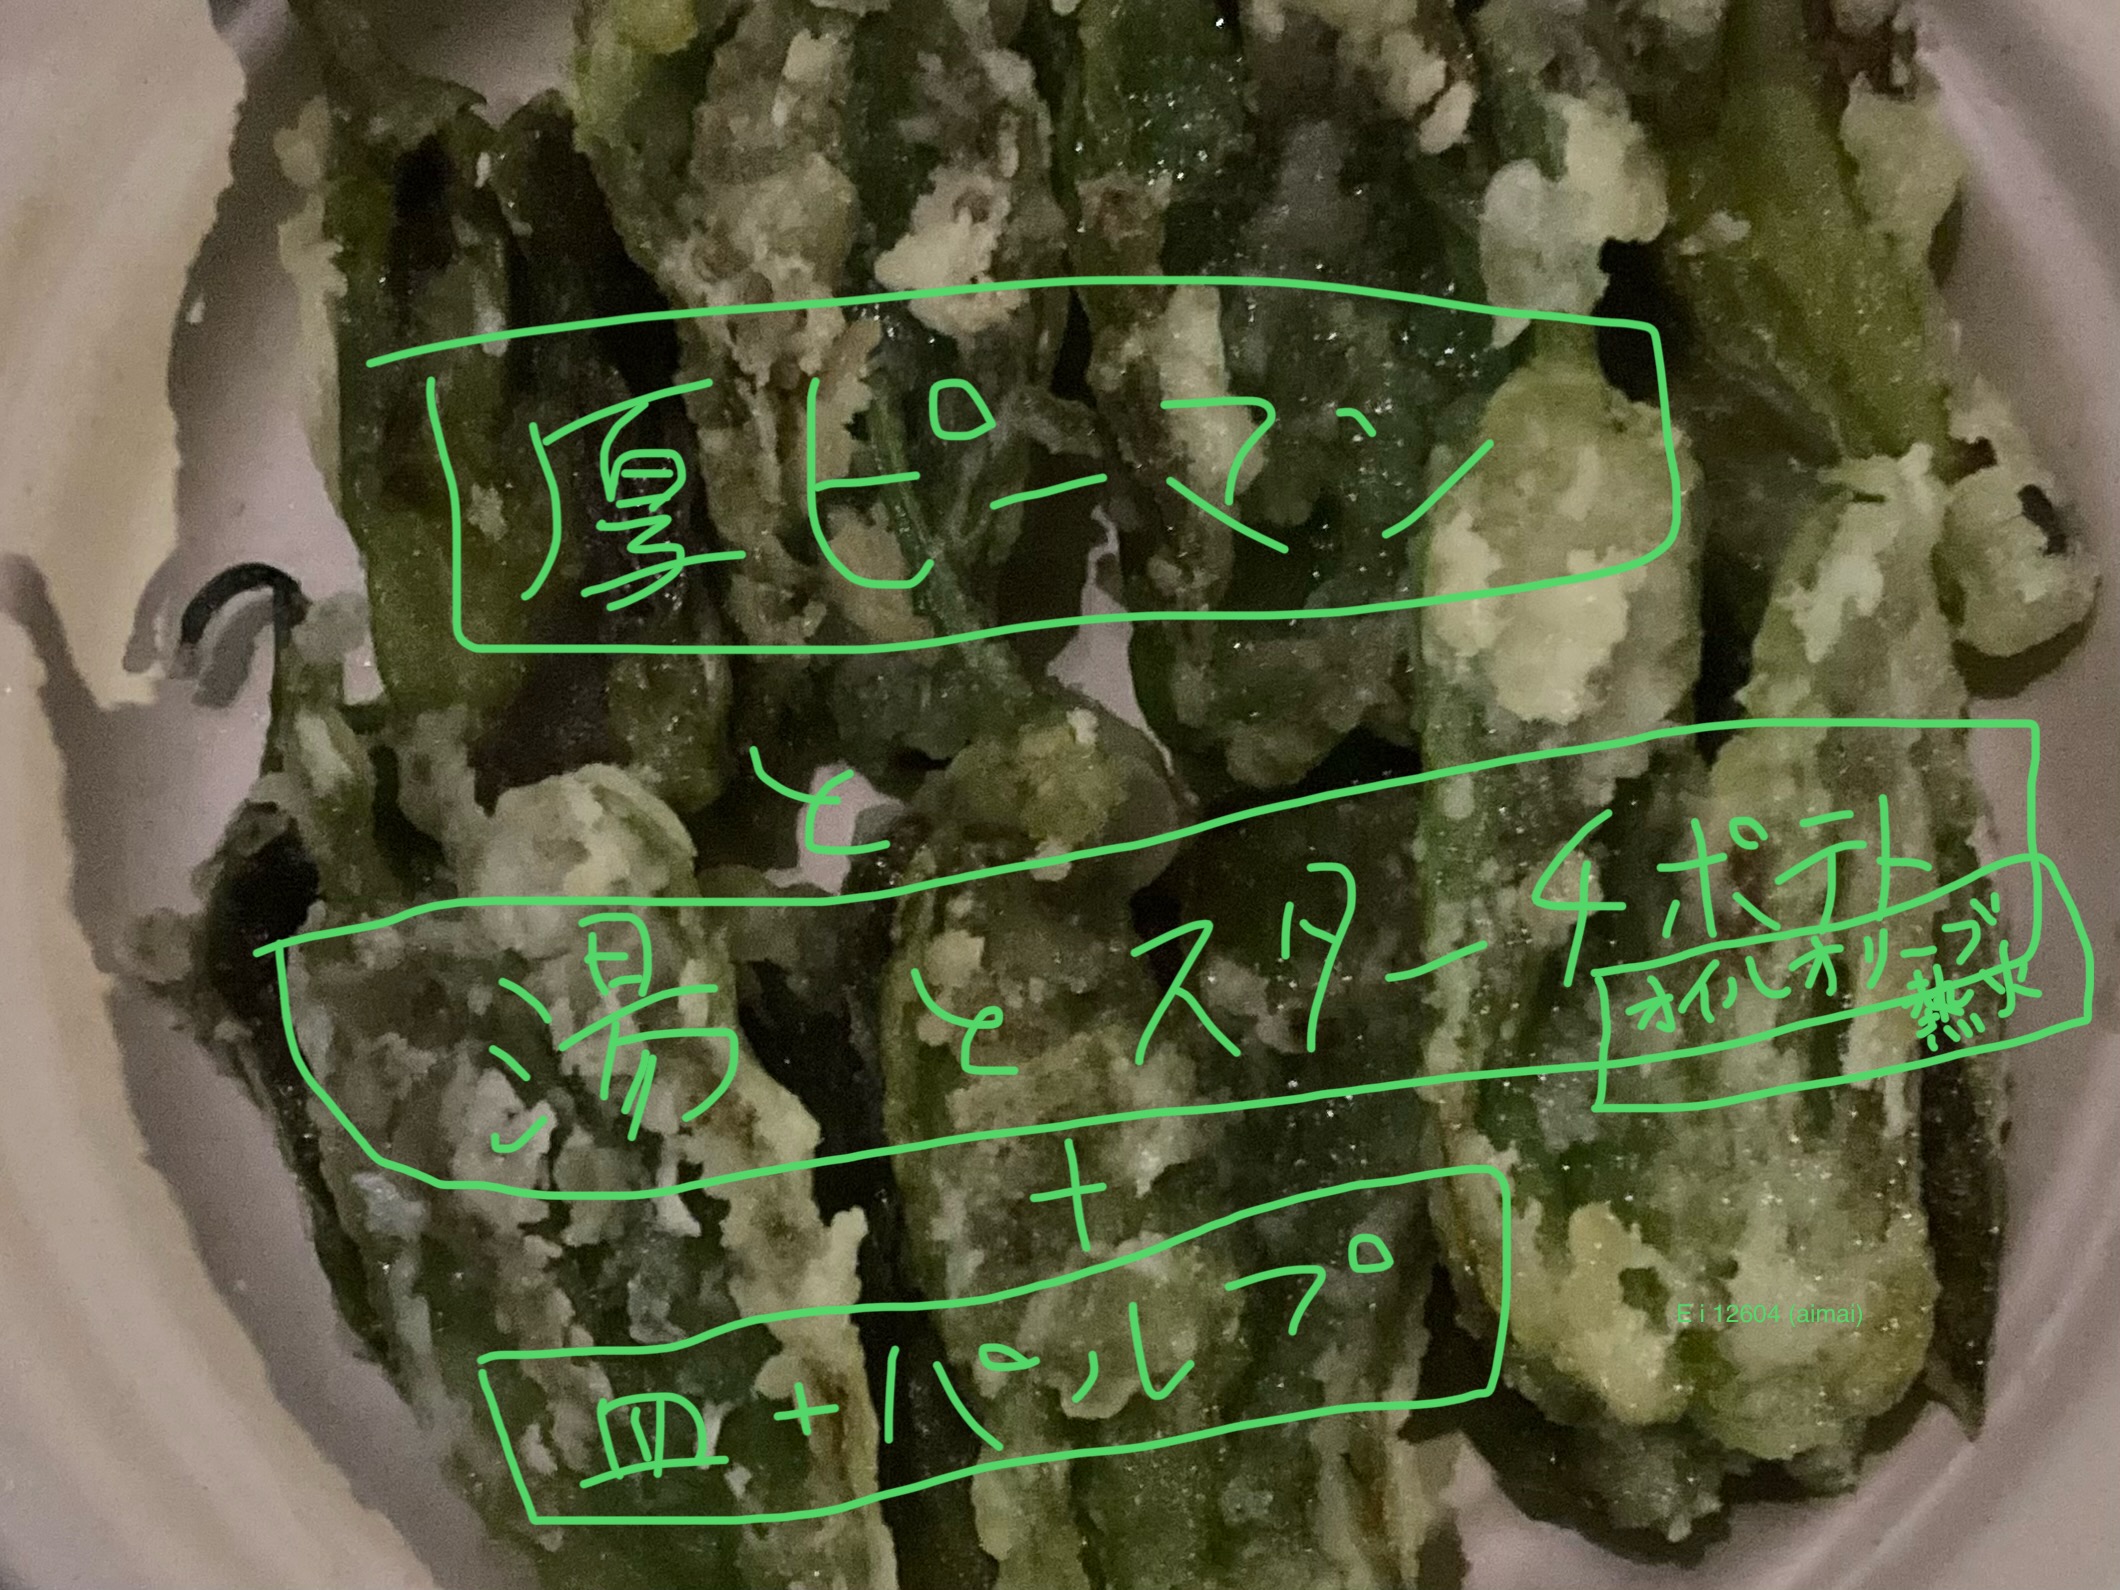 厦ピーマン
と
湯とスターチポテト
オイルオリーブ
熱水
+
皿+パルプ
E i 12604 (aimai)